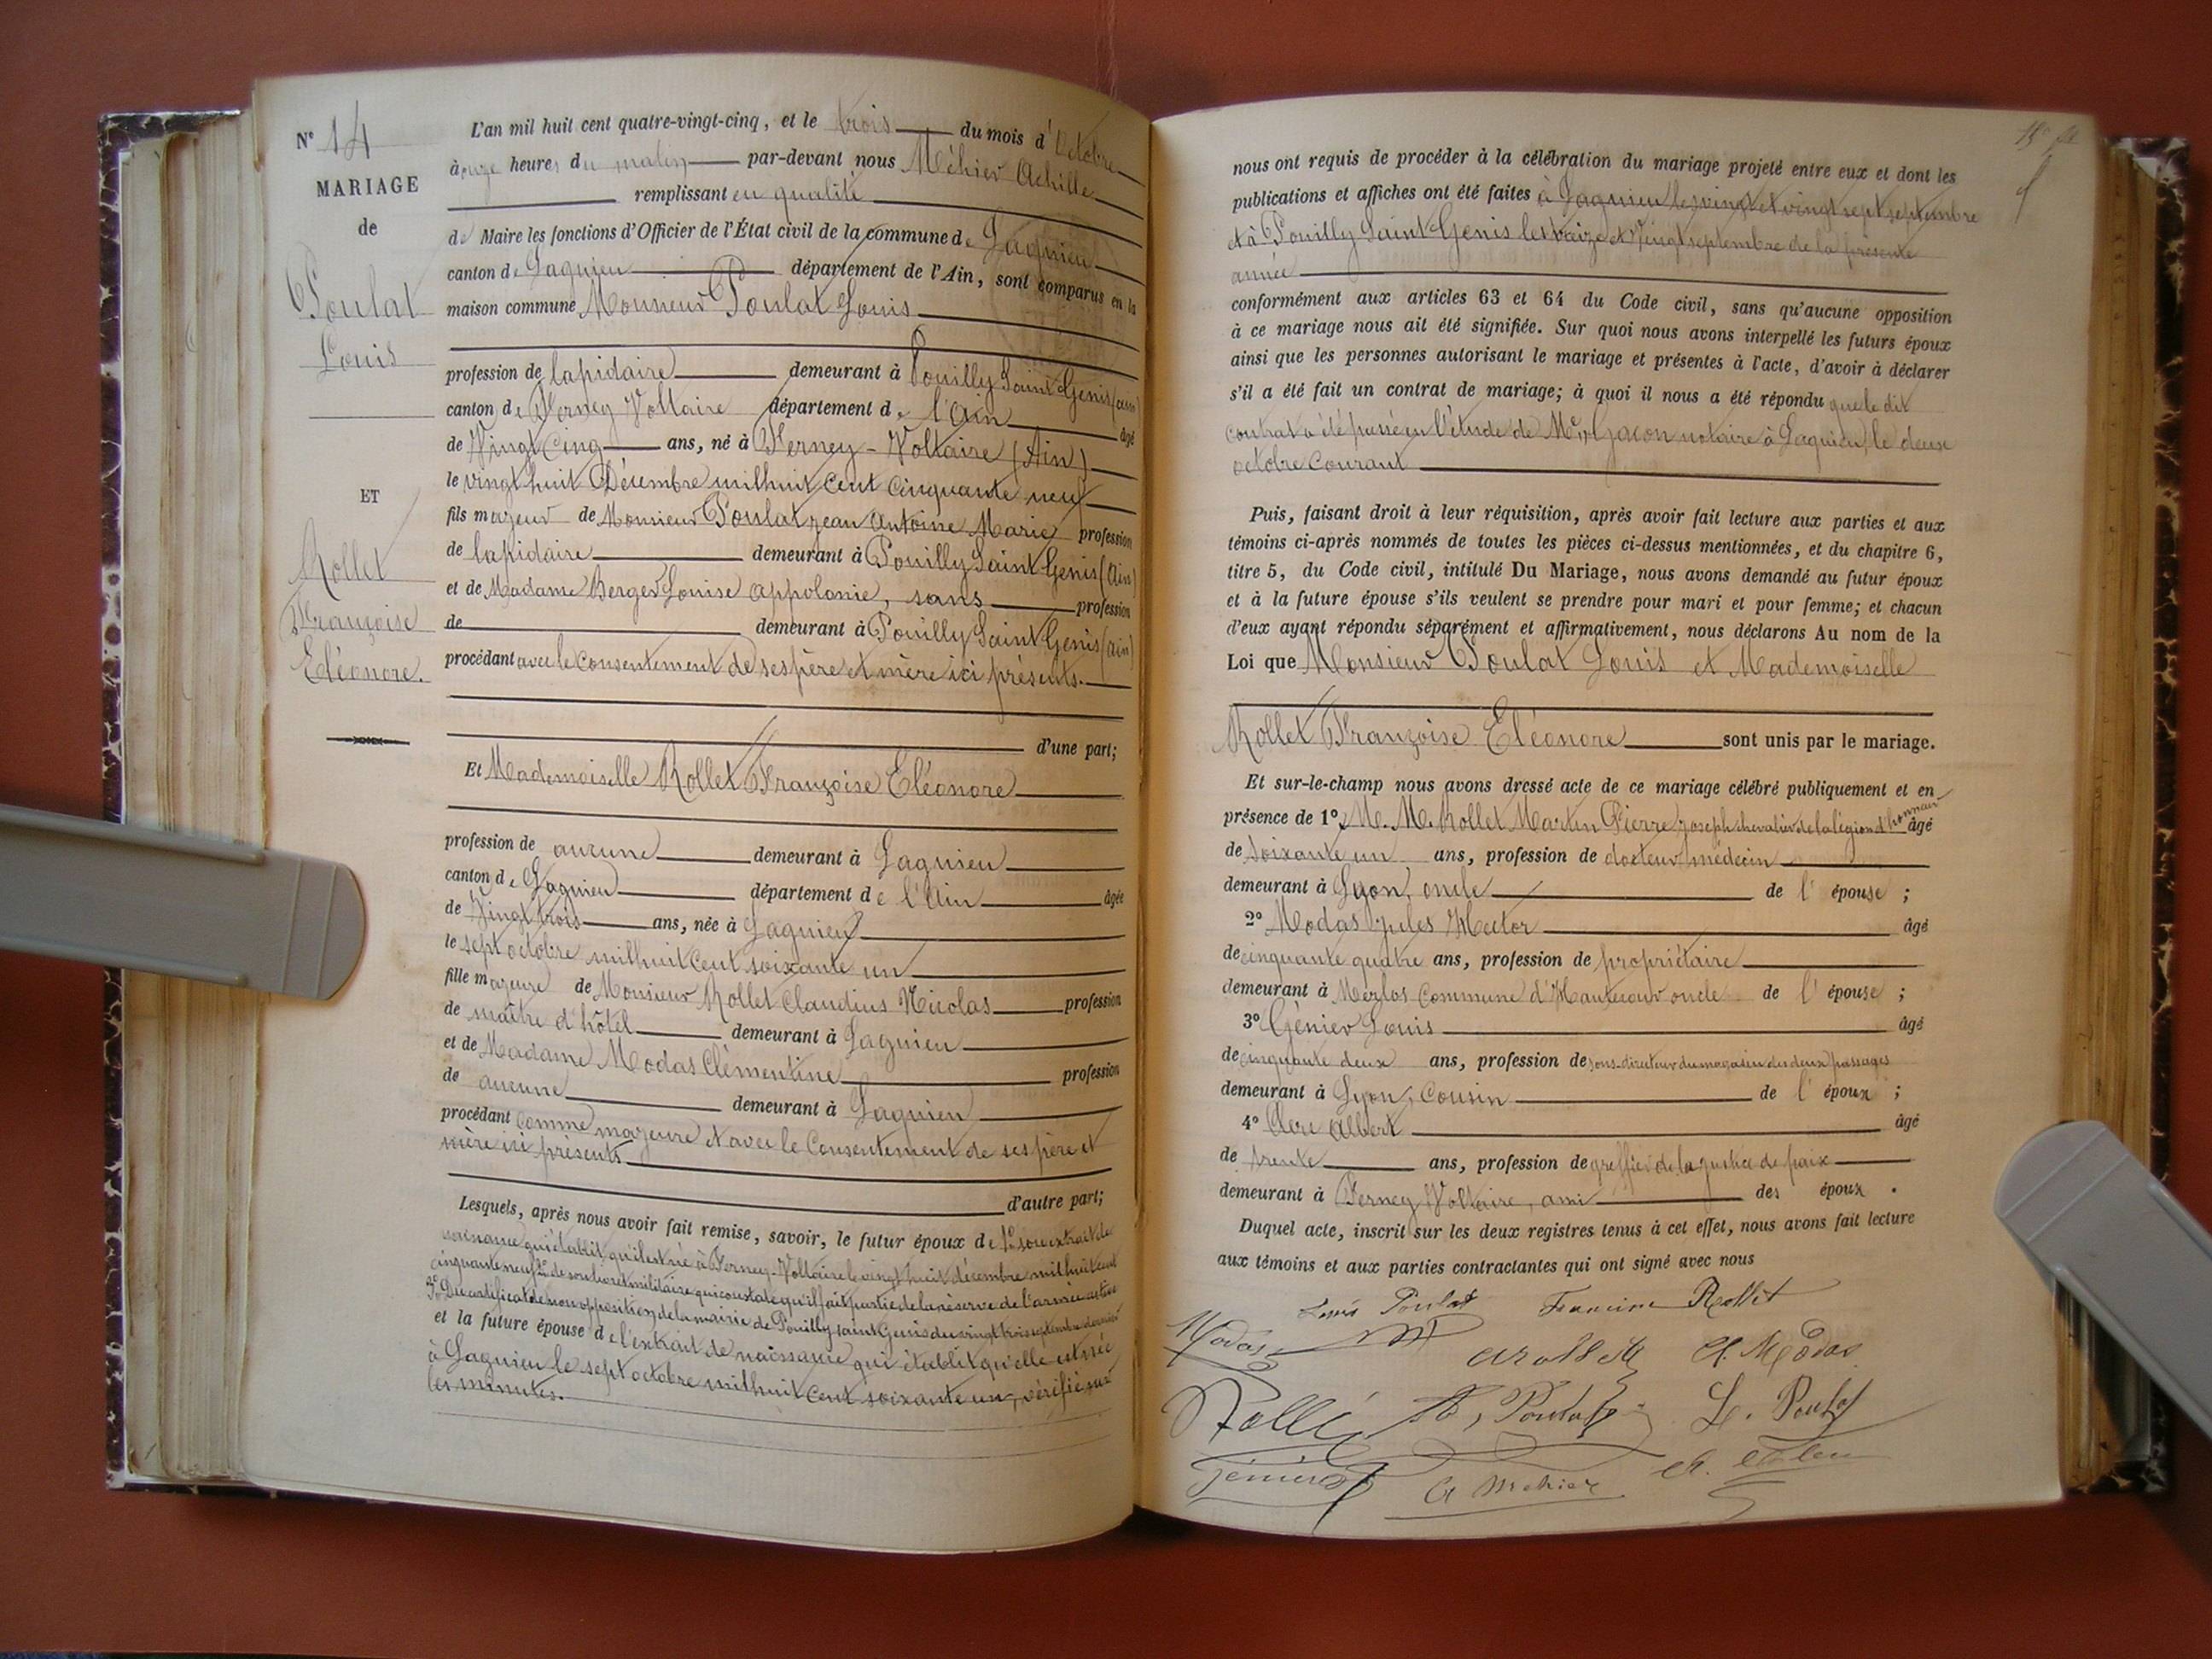 N° 14
MARIAGE
de
Poulat
Louis
ET
Rollet
Françoise
Eléonore.
L'an mil huit cent quatre-vingt-cinq, et le trois du mois d'Octobre
à onze heures du matin par-devant nous Méhier Achille
remplissant en qualité
de Maire les fonctions d'Officier de l'État civil de la commune de Lagnieu
canton de Lagnieu département de l'Ain, sont comparus en la
maison commune Monsieur Poulat Louis
profession de lapidaire demeurant à Pouilly Saint Genis (ain)
canton de Ferney Voltaire département de l'Ain âgé
de Vingt Cinq ans, né à Ferney-Voltaire (Ain)
le vingt huit Décembre mil huit cent cinquante neuf
fils majeur de Monsieur Poulat Jean Antoine Marie profession
de lapidaire demeurant à Pouilly Saint Genis (Ain)
et de Madame Berger Louise Appolonie, sans profession
de demeurant à Pouilly Saint Genis (ain)
procédant avec le consentement de ses père et mère ici présents.
d'une part;
Et Mademoiselle Rollet Françoise Eléonore
profession de aucune demeurant à Lagnieu
canton de Lagnieu département de l'Ain âgée
de Vingt trois ans, née à Lagnieu
le sept octobre mil huit cent soixante un
fille majeure de Monsieur Rollet Claudius Nicolas profession
de maître d'hôtel demeurant à Lagnieu
et de Madame Modas Clémentine profession
de aucune demeurant à Lagnieu
procédant comme majeure et avec le consentement de ses père et
mère ici présents
d'autre part;
Lesquels, après nous avoir fait remise, savoir, le futur époux de 1° son extrait de
naissance qui établit qu'il est né à Ferney-Voltaire le vingt huit décembre mil huit cent
cinquante neuf 2° de son livret militaire qui constate qu'il fait partie de la réserve de l'armée active
3° Du certificat de non opposition de la mairie de Pouilly saint Genis du vingt trois septembre dernier
et la future épouse de l'extrait de naissance qui établit qu'elle est née
à Lagnieu le sept octobre mil huit cent soixante un, vérifié sur
les minutes.
nous ont requis de procéder à la célébration du mariage projeté entre eux et dont les
publications et affiches ont été faites à Lagnieu les vingt et vingt sept septembre
et à Pouilly Saint Genis les treize et Vingt septembre de la présente
année
conformément aux articles 63 et 64 du Code civil, sans qu'aucune opposition
à ce mariage nous ait été signifiée. Sur quoi nous avons interpellé les futurs époux
ainsi que les personnes autorisant le mariage et présentes à l'acte, d'avoir à déclarer
s'il a été fait un contrat de mariage; à quoi il nous a été répondu que le dit
contrat a été passé en l'étude de Me Gacon notaire à Lagnieu, le deux
octobre courant
Puis, faisant droit à leur réquisition, après avoir fait lecture aux parties et aux
témoins ci-après nommés de toutes les pièces ci-dessus mentionnées, et du chapitre 6,
titre 5, du Code civil, intitulé Du Mariage, nous avons demandé au futur époux
et à la future épouse s'ils veulent se prendre pour mari et pour femme; et chacun
d'eux ayant répondu séparément et affirmativement, nous déclarons Au nom de la
Loi que Monsieur Poulat Louis et Mademoiselle
Rollet Françoise Eléonore sont unis par le mariage.
Et sur-le-champ nous avons dressé acte de ce mariage célébré publiquement et en
présence de 1° M. M. Rollet Martin Pierre Joseph chevalier de la légion d'honneur âgé
de soixante un ans, profession de docteur médecin
demeurant à Lyon, oncle de l'épouse;
2° Modas Jules Hector âgé
de cinquante quatre ans, profession de propriétaire
demeurant à Merlos commune d'Hautecour oncle de l'épouse;
3° Génier Louis âgé
de cinquante deux ans, profession de sous-directeur du magasin des deux passages
demeurant à Lyon, Cousin de l'époux;
4° Clerc Albert âgé
de trente ans, profession de greffier de la justice de paix
demeurant à Ferney Voltaire, ami des époux.
Duquel acte, inscrit sur les deux registres tenus à cet effet, nous avons fait lecture
aux témoins et aux parties contractantes qui ont signé avec nous
Louis Poulat Francine Rollet
Modas C. Modas
Poulat L. Poulat
Génier A Mehier